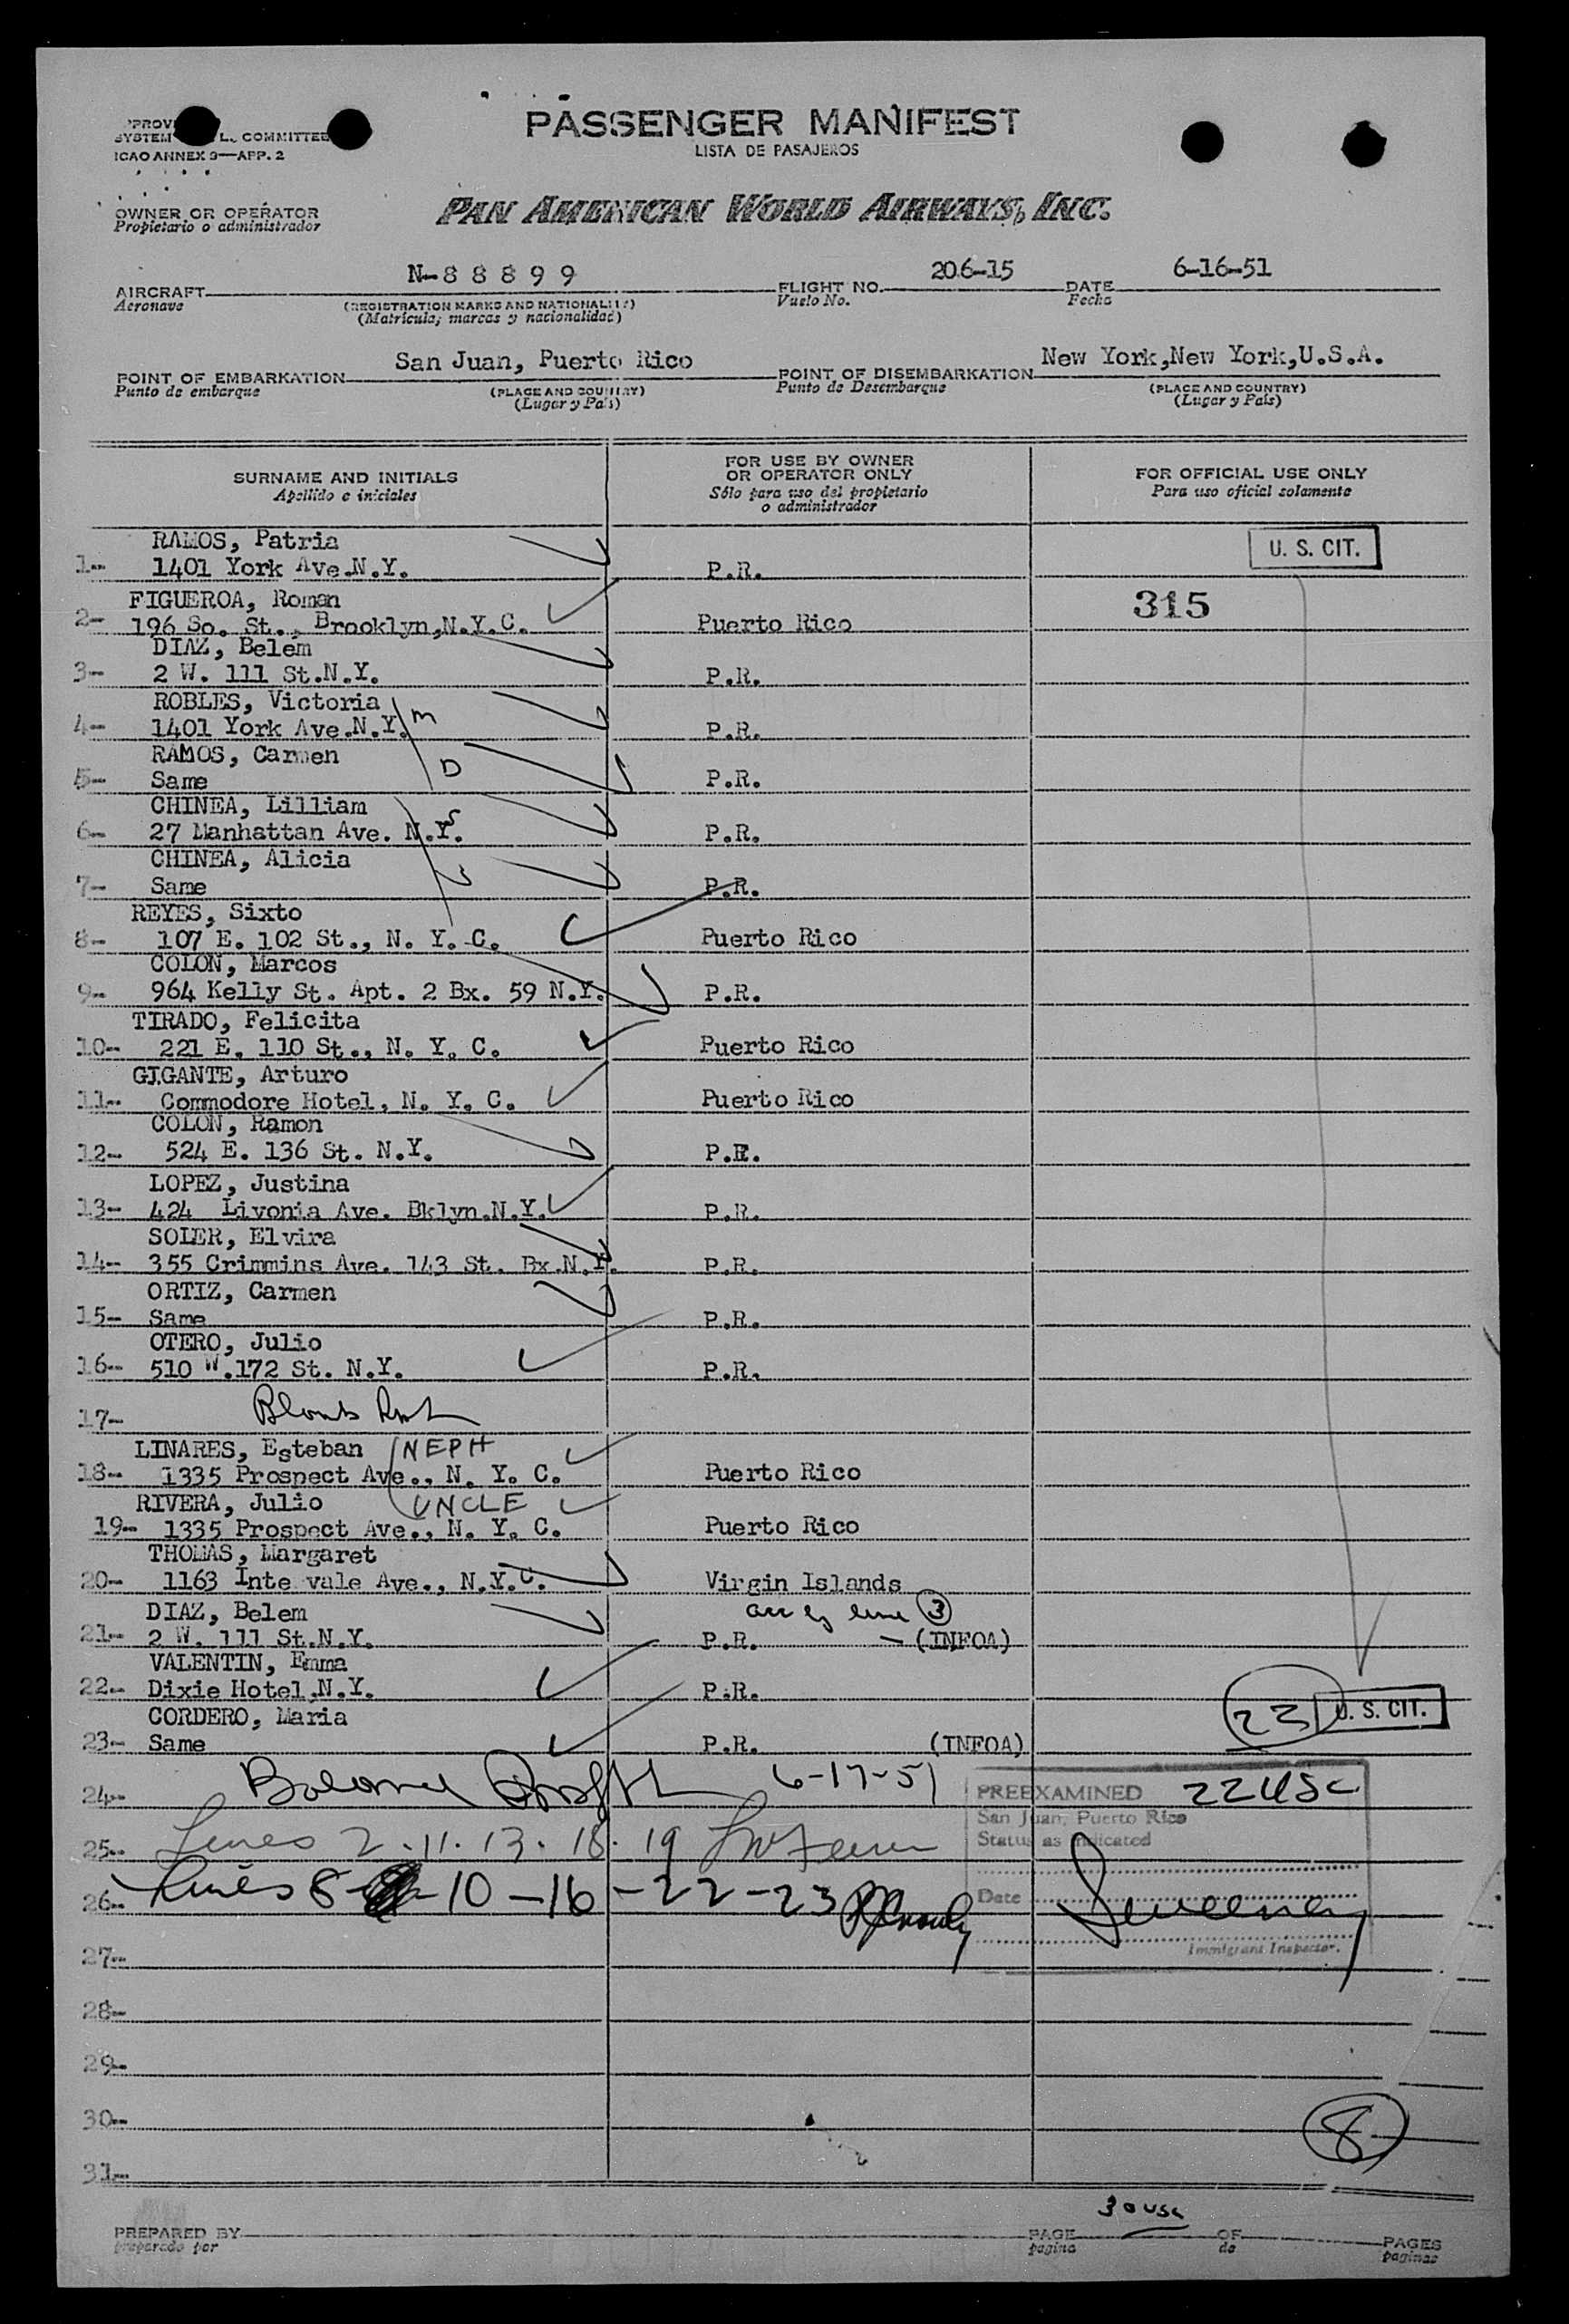 PASSENGER MANIFEST
LISTA DE PASAJEROS
SYSTEM L. COMMITTEE
ICAO ANNEX 9—APP. 2
OWNER OR OPERATOR
Propietario o administrador
PAN AMERICAN WORLD AIRWAYS, INC.
AIRCRAFT N-88899 FLIGHT NO. 206-15 DATE 6-16-51
Aeronave (REGISTRATION MARKS AND NATIONALITY) Vuelo No. Fecha
(Matricula; marcas y nacionalidad)
POINT OF EMBARKATION San Juan, Puerto Rico POINT OF DISEMBARKATION New York,New York,U.S.A.
Punto de embarque (PLACE AND COUNTRY) Punto de Desembarque (PLACE AND COUNTRY)
(Lugar y País) (Lugar y País)
SURNAME AND INITIALS
Apellido e iniciales
FOR USE BY OWNER
OR OPERATOR ONLY
Sólo para uso del propietario
o administrador
FOR OFFICIAL USE ONLY
Para uso oficial solamente
RAMOS, Patria U. S. CIT.
1-- 1401 York Ave.N.Y. P.R.
FIGUEROA, Roman 315
2- 196 So. St., Brooklyn,N.Y.C. Puerto Rico
DIAZ, Belem
3-- 2 W. 111 St.N.Y. P.R.
ROBLES, Victoria m
4-- 1401 York Ave.N.Y. P.R.
RAMOS, Carmen D
5-- Same P.R.
CHINEA, Lilliam S
6-- 27 Manhattan Ave. N.Y. P.R.
CHINEA, Alicia
7-- Same P.R.
REYES, Sixto
8-- 107 E. 102 St., N. Y. C. Puerto Rico
COLON, Marcos
9-- 964 Kelly St. Apt. 2 Bx. 59 N.Y. P.R.
TIRADO, Felicita
10-- 221 E. 110 St., N. Y. C. Puerto Rico
GIGANTE, Arturo
11-- Commodore Hotel, N. Y. C. Puerto Rico
COLON, Ramon
12-- 524 E. 136 St. N.Y. P.R.
LOPEZ, Justina
13-- 424 Livonia Ave. Bklyn.N.Y. P.R.
SOLER, Elvira
14-- 355 Crimmins Ave. 143 St. Bx.N.Y. P.R.
ORTIZ, Carmen
15-- Same P.R.
OTERO, Julio
16-- 510 W.172 St. N.Y. P.R.
17--
LINARES, Esteban NEPH
18-- 1335 Prospect Ave., N. Y. C. Puerto Rico
RIVERA, Julio UNCLE
19-- 1335 Prospect Ave., N. Y. C. Puerto Rico
THOMAS, Margaret
20-- 1163 Inte vale Ave., N.Y.C. Virgin Islands
DIAZ, Belem line 3
21-- 2 W. 111 St.N.Y. P.R. -(INFOA)
VALENTIN, Emma
22-- Dixie Hotel,N.Y. P.R.
CORDERO, Maria 23 U. S. CIT.
23-- Same P.R. (INFOA)
24-- 6-17-51 PREEXAMINED 22 USC
San Juan, Puerto Rico
25-- Lines 2-11-13-18-19 Status as indicated
26-- Lines 8- -10-16-22-23 Date Sweeney
Immigrant Inspector.
27--
28--
29--
30-- 8
31--
3 0 USC
PREPARED BY PAGE OF PAGES
preparado por pagina de paginas